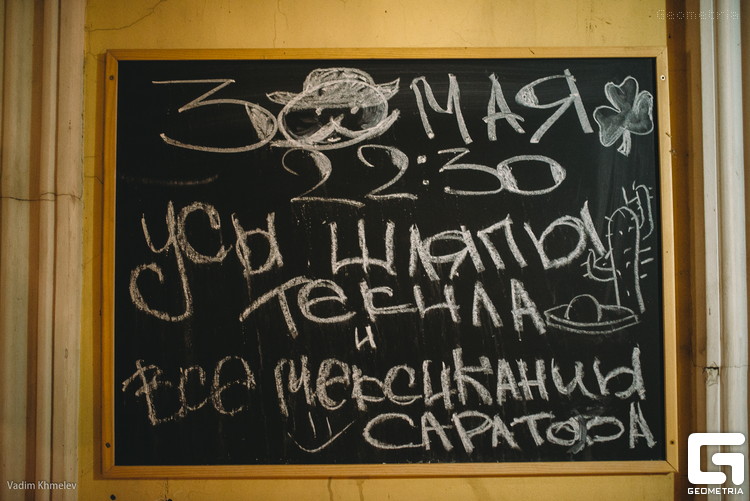 Geometria
30 МАЯ
22:30
УСЫ ШЛЯПЫ
ТЕКИЛА
и
ВСЕ МЕКСИКАНЦЫ
САРАТОВА
Vadim Khmelev
GEOMETRIA